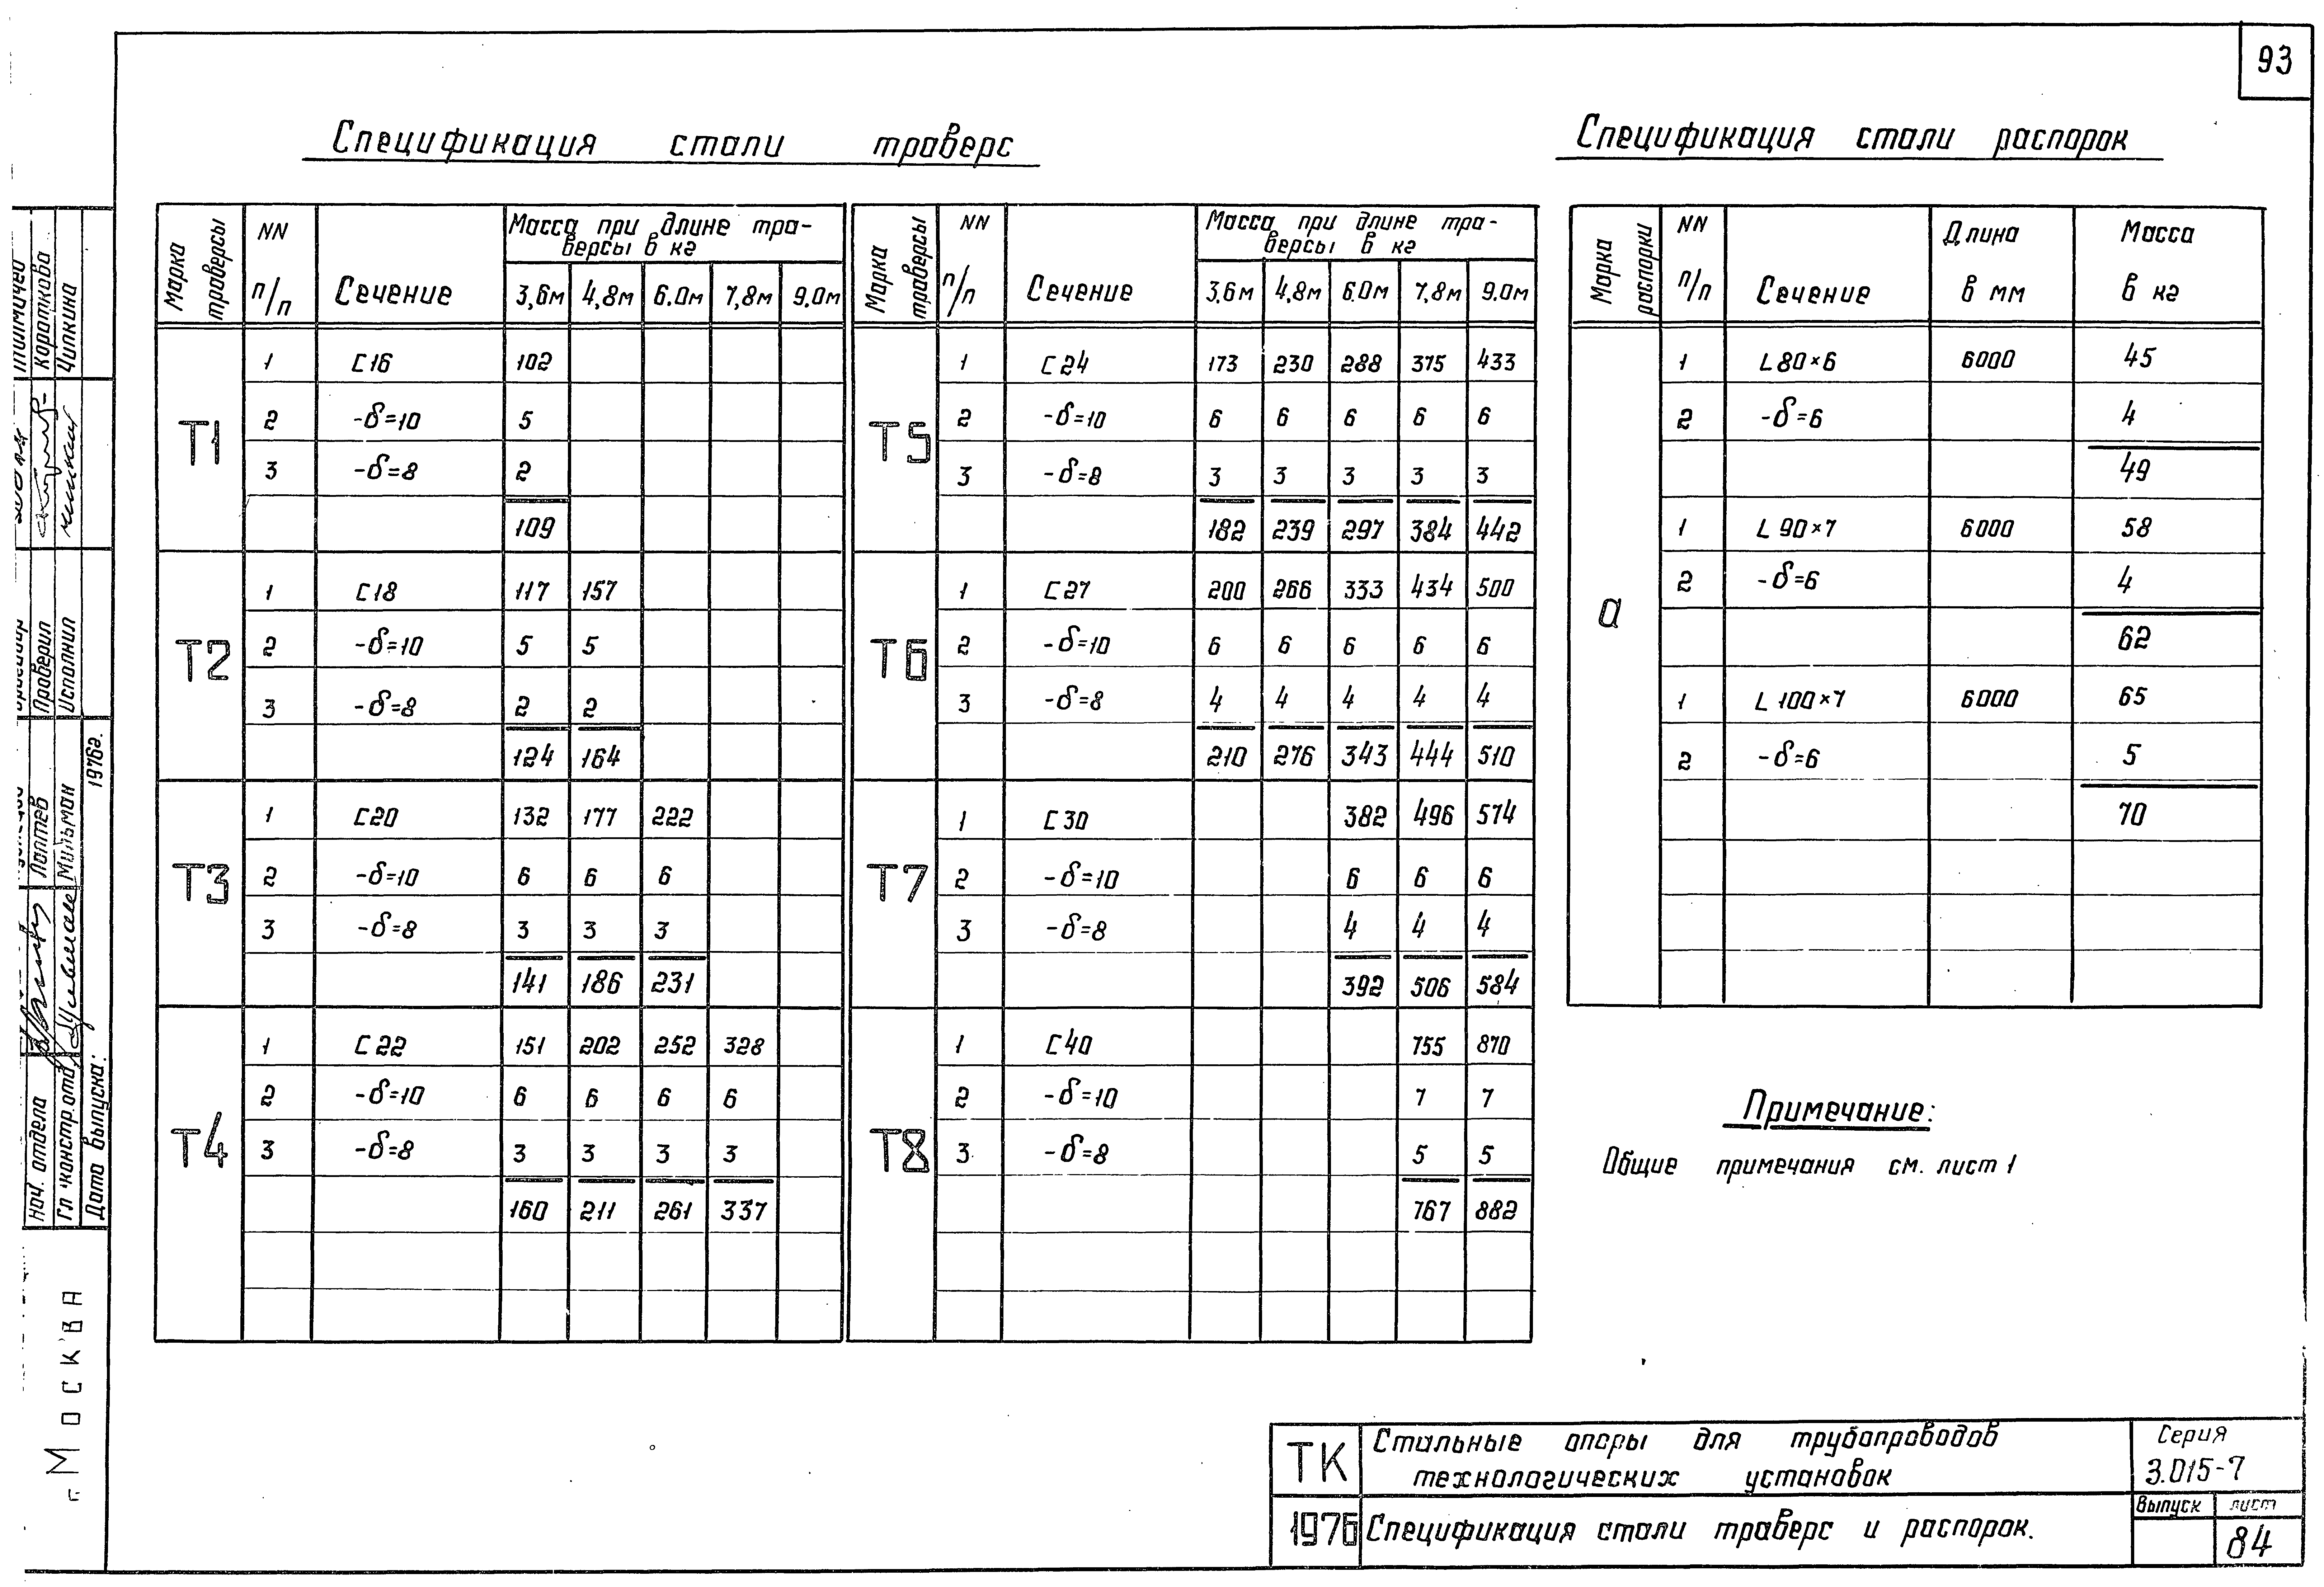 93
Спецификация стали траверс
Спецификация стали распорок
Марка траверсы | NN п/п | Сечение | Масса при длине траверсы в кг
3,6м 4,8м 6.0м 7,8м 9.0м
Т1
1 [16 102
2 -δ=10 5
3 -δ=8 2
109
Т2
1 [18 117 157
2 -δ=10 5 5
3 -δ=8 2 2
124 164
Т3
1 [20 132 177 222
2 -δ=10 6 6 6
3 -δ=8 3 3 3
141 186 231
Т4
1 [22 151 202 252 328
2 -δ=10 6 6 6 6
3 -δ=8 3 3 3 3
160 211 261 337
Марка траверсы | NN п/п | Сечение | Масса при длине траверсы в кг
3,6м 4,8м 6.0м 7,8м 9.0м
Т5
1 [24 173 230 288 375 433
2 -δ=10 6 6 6 6 6
3 -δ=8 3 3 3 3 3
182 239 297 384 442
Т6
1 [27 200 266 333 434 500
2 -δ=10 6 6 6 6 6
3 -δ=8 4 4 4 4 4
210 276 343 444 510
Т7
1 [30 382 496 574
2 -δ=10 6 6 6
3 -δ=8 4 4 4
392 506 584
Т8
1 [40 755 870
2 -δ=10 7 7
3 -δ=8 5 5
767 882
Марка распорки | NN п/п | Сечение | Длина в мм | Масса в кг
а
1 L80×6 6000 45
2 -δ=6 4
49
1 L 90×7 6000 58
2 -δ=6 4
62
1 L 100×7 6000 65
2 -δ=6 5
70
Примечание:
Общие примечания см. лист 1
ТК
1976
Стальные опоры для трубопроводов
технологических установок
Спецификация стали траверс и распорок.
Серия
3.015-7
Выпуск лист
84
Короткова
Ципкина
Проверил
Исполнил
Лаптев
Мильман
1976г.
Нач. отдела
Гл констр.отд.
Дата выпуска:
г. Москва